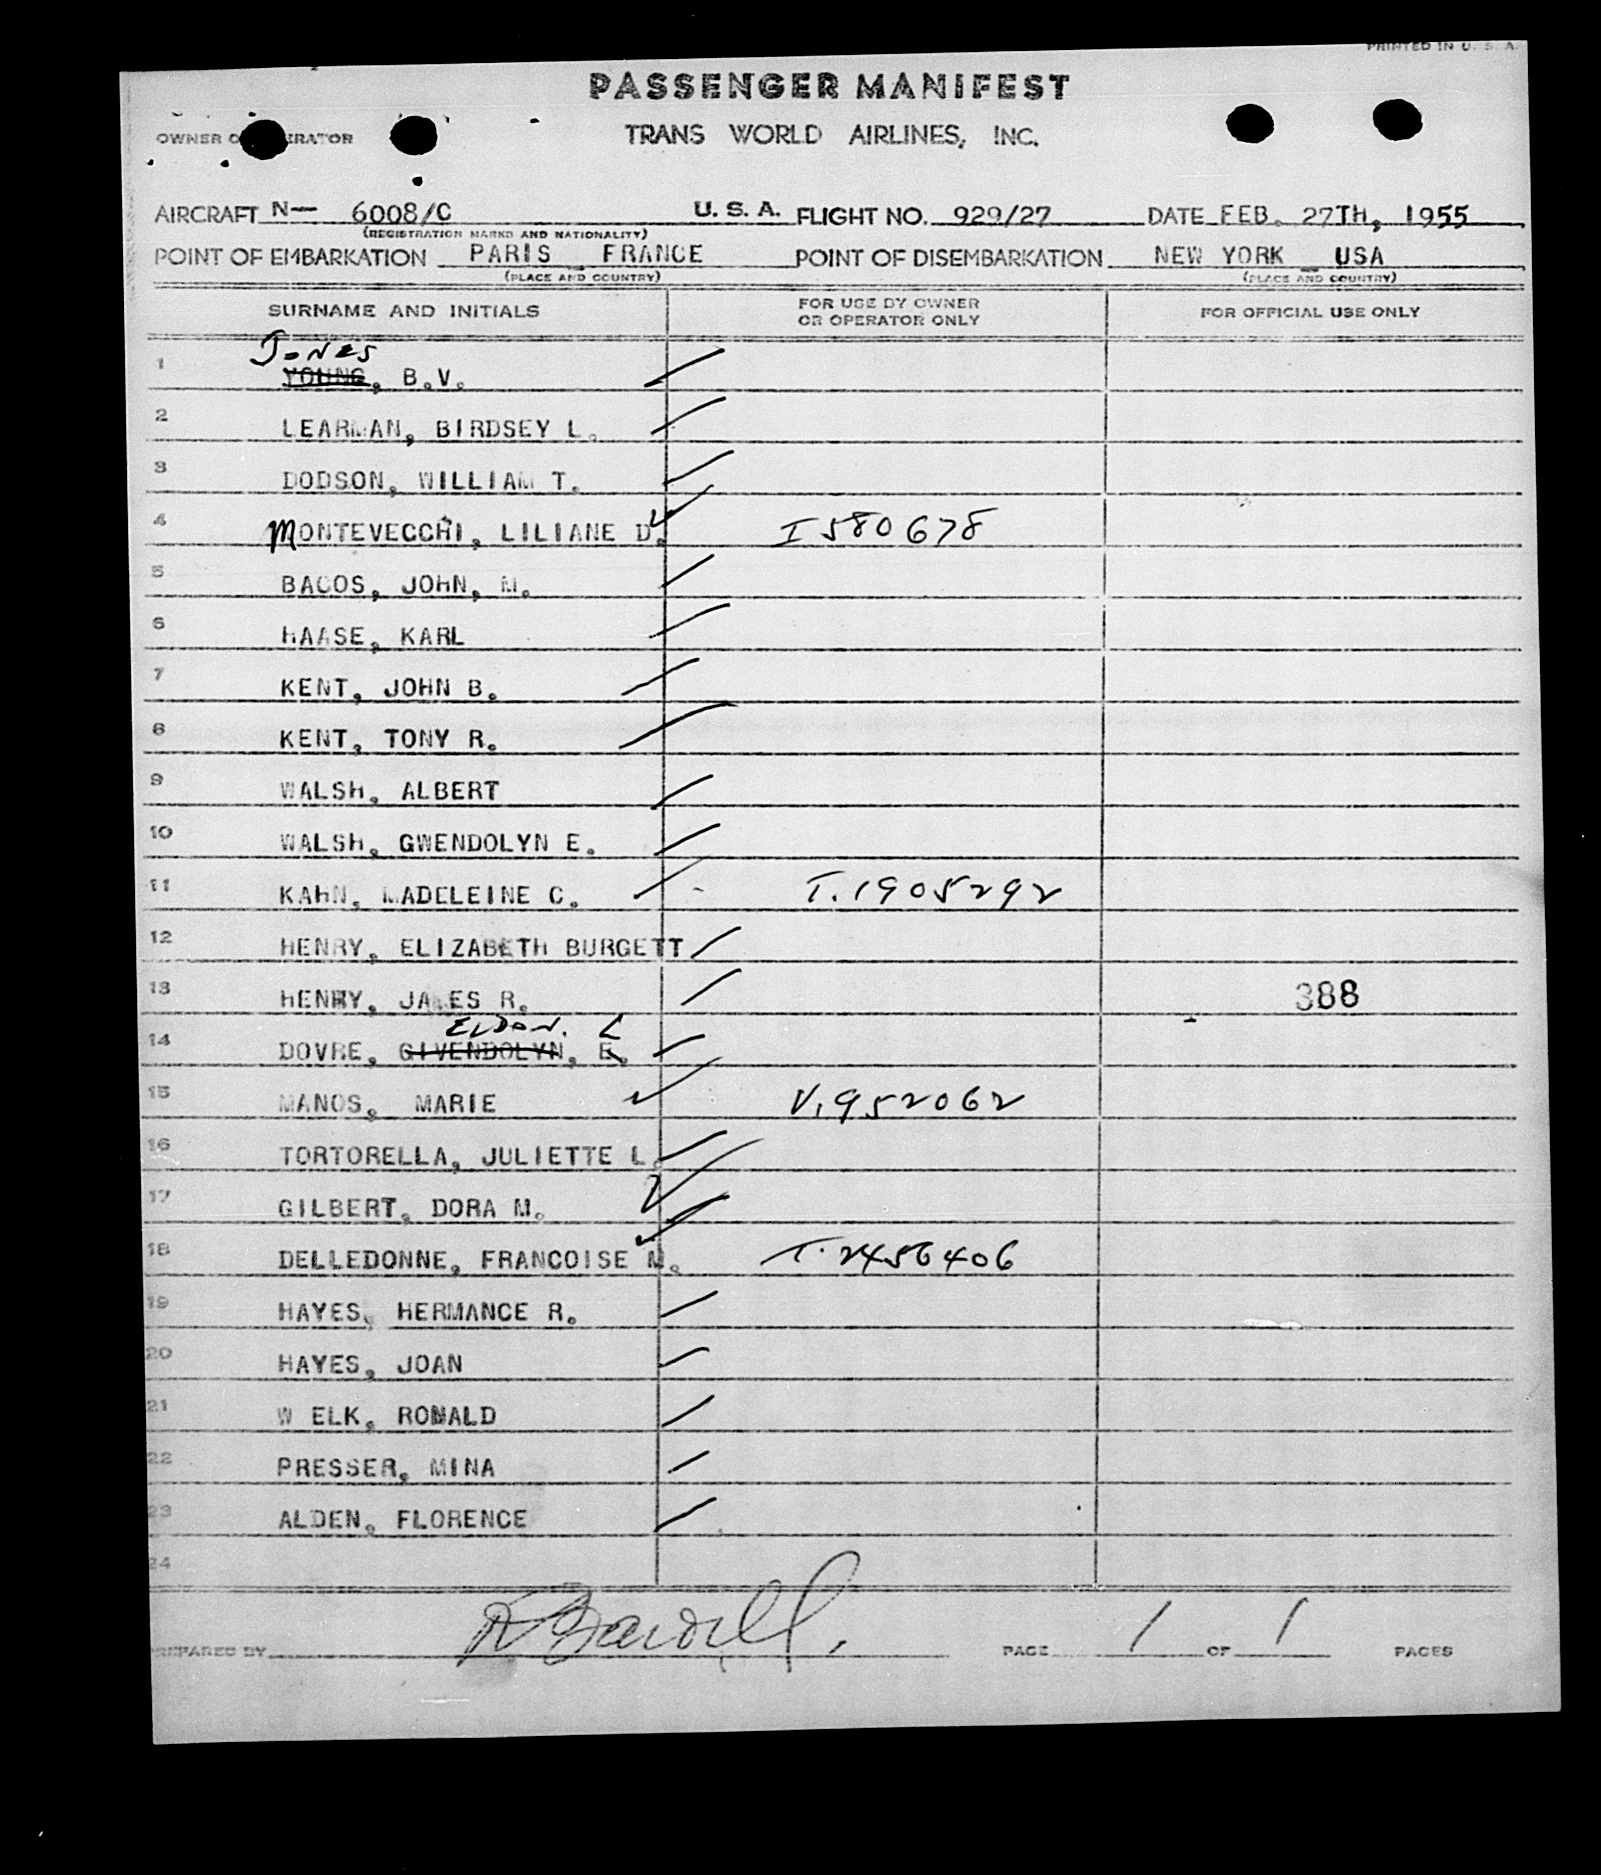 PRINTED IN U. S. A.
PASSENGER MANIFEST
OWNER O ERATOR TRANS WORLD AIRLINES, INC.
AIRCRAFT N— 6008/C U. S. A. FLIGHT NO. 929/27 DATE FEB. 27TH, 1955
(REGISTRATION MARKS AND NATIONALITY)
POINT OF EMBARKATION PARIS FRANCE POINT OF DISEMBARKATION NEW YORK USA
(PLACE AND COUNTRY) (PLACE AND COUNTRY)
SURNAME AND INITIALS FOR USE BY OWNER OR OPERATOR ONLY FOR OFFICIAL USE ONLY
JONES
1 YOUNG, B.V.
2 LEARMAN, BIRDSEY L.
3 DODSON, WILLIAM T.
4 MONTEVECCHI, LILIANE D. I 580678
5 BACOS, JOHN, M.
6 HAASE, KARL
7 KENT, JOHN B.
8 KENT, TONY R.
9 WALSH, ALBERT
10 WALSH, GWENDOLYN E.
11 KAHN, MADELEINE C. T. 1905292
12 HENRY, ELIZABETH BURGETT
13 HENRY, JAMES R. 388
ELDON. L
14 DOVRE, GIVENDOLYN, E.
15 MANOS, MARIE V. 952062
16 TORTORELLA, JULIETTE L.
17 GILBERT, DORA M.
18 DELLEDONNE, FRANCOISE M. T. 2456406
19 HAYES, HERMANCE R.
20 HAYES, JOAN
21 W ELK, RONALD
22 PRESSER, MINA
23 ALDEN, FLORENCE
24
PREPARED BY PAGE 1 OF 1 PAGES